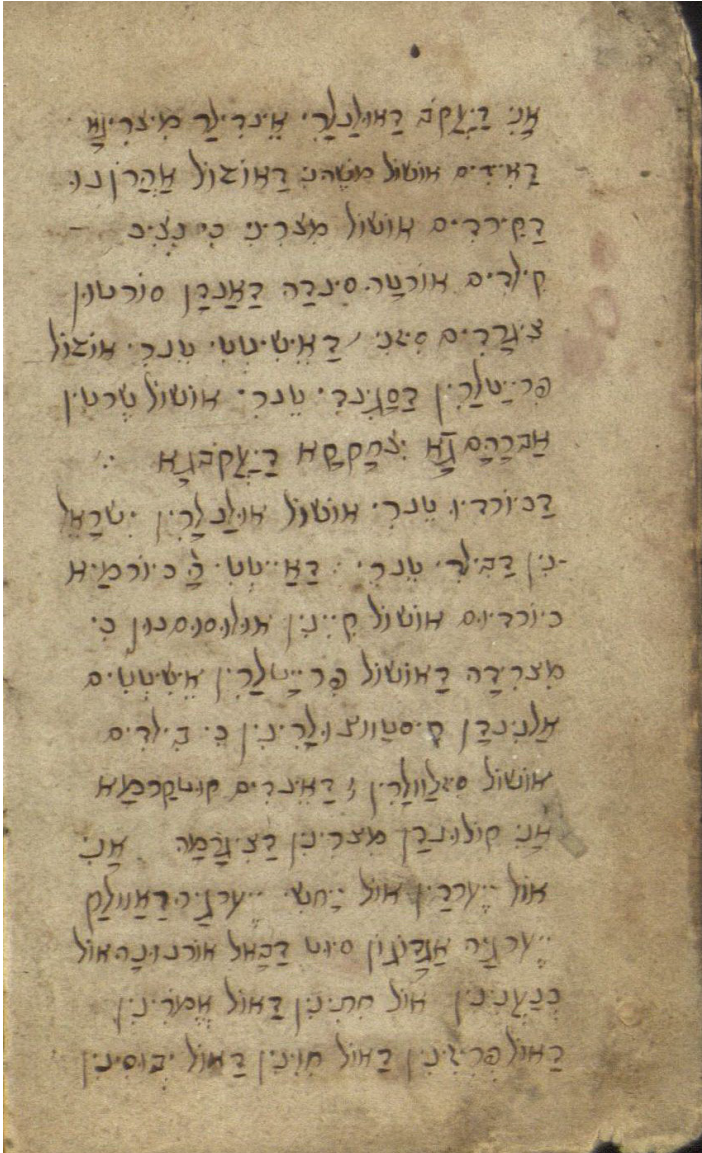 אָנִי דַיַעֲקֹב דַאוּלַנלָרִי אֵינדִילַר מִיצרִיגָא
דַאיִידִים אוֹשׁוֹל מֹשֶׁהנִי דַאוֹזוֹל אַהֲרֹןנוּ
דַקִירדִים אוֹשׁוֹל מִצרִינִי כִי נֶצִיכ
קִילדִים אוֹרטַה סִינדָה דַאַנדָן סוֹרטוּן
צִיגַרדִים סִיזנִי דַאֵישִׁיטטִי טֵנרִי אוֹזוֹל
פִרייַטלַרִין דַסַגִינדִי טֵנרִי אוֹשׁוֹל שֶׁרטִין
אַברָהָם גָא יִצחָקקָא דַיַעֲקֹבגָא
דַכיוֹרדִיוּ טֵנרִי אוֹשׁוֹל אוּלַנלָרִין יִשׂרָאֵל
נִין דַבִילִי טֵנרִי דַאַייטטִי יָ כיוֹרמַיא
כיוֹרדיוּם אוֹשׁוֹל קִייִנִין אוּלוּסוּמנוּן כִי
מִצרִידָה דַאוֹשׁוֹל פִרייַטלַרִין אֵישִׁטטִים
אַלנִינדַן קִיסטַווצוּלָרִינִין כִי בִילדִים
אוֹשׁוֹל סִיזלַוולַרִין דַאֵינדִים קוּטקַרמַא
אָנִי קוֹלוּנדַן מִצרִינִין דַצִיגַרמָה אָנִי
אוֹל יֵערדַין אוֹל יַיחשִׁי יֵערגָיה דַאַוולַק
יֵערגָיה אַגַדוֹגוֹן סִיוּט דַבַאל אוֹרנוּנָה אוֹל
כְנַעֲנִינִין אוֹל חִתִינִין דַאוֹל אֱמֹרִינִין
דַאוֹל פְרִיזִינִין דַאוֹל חִוִינִין דַאוֹל יְבוּסִינִין